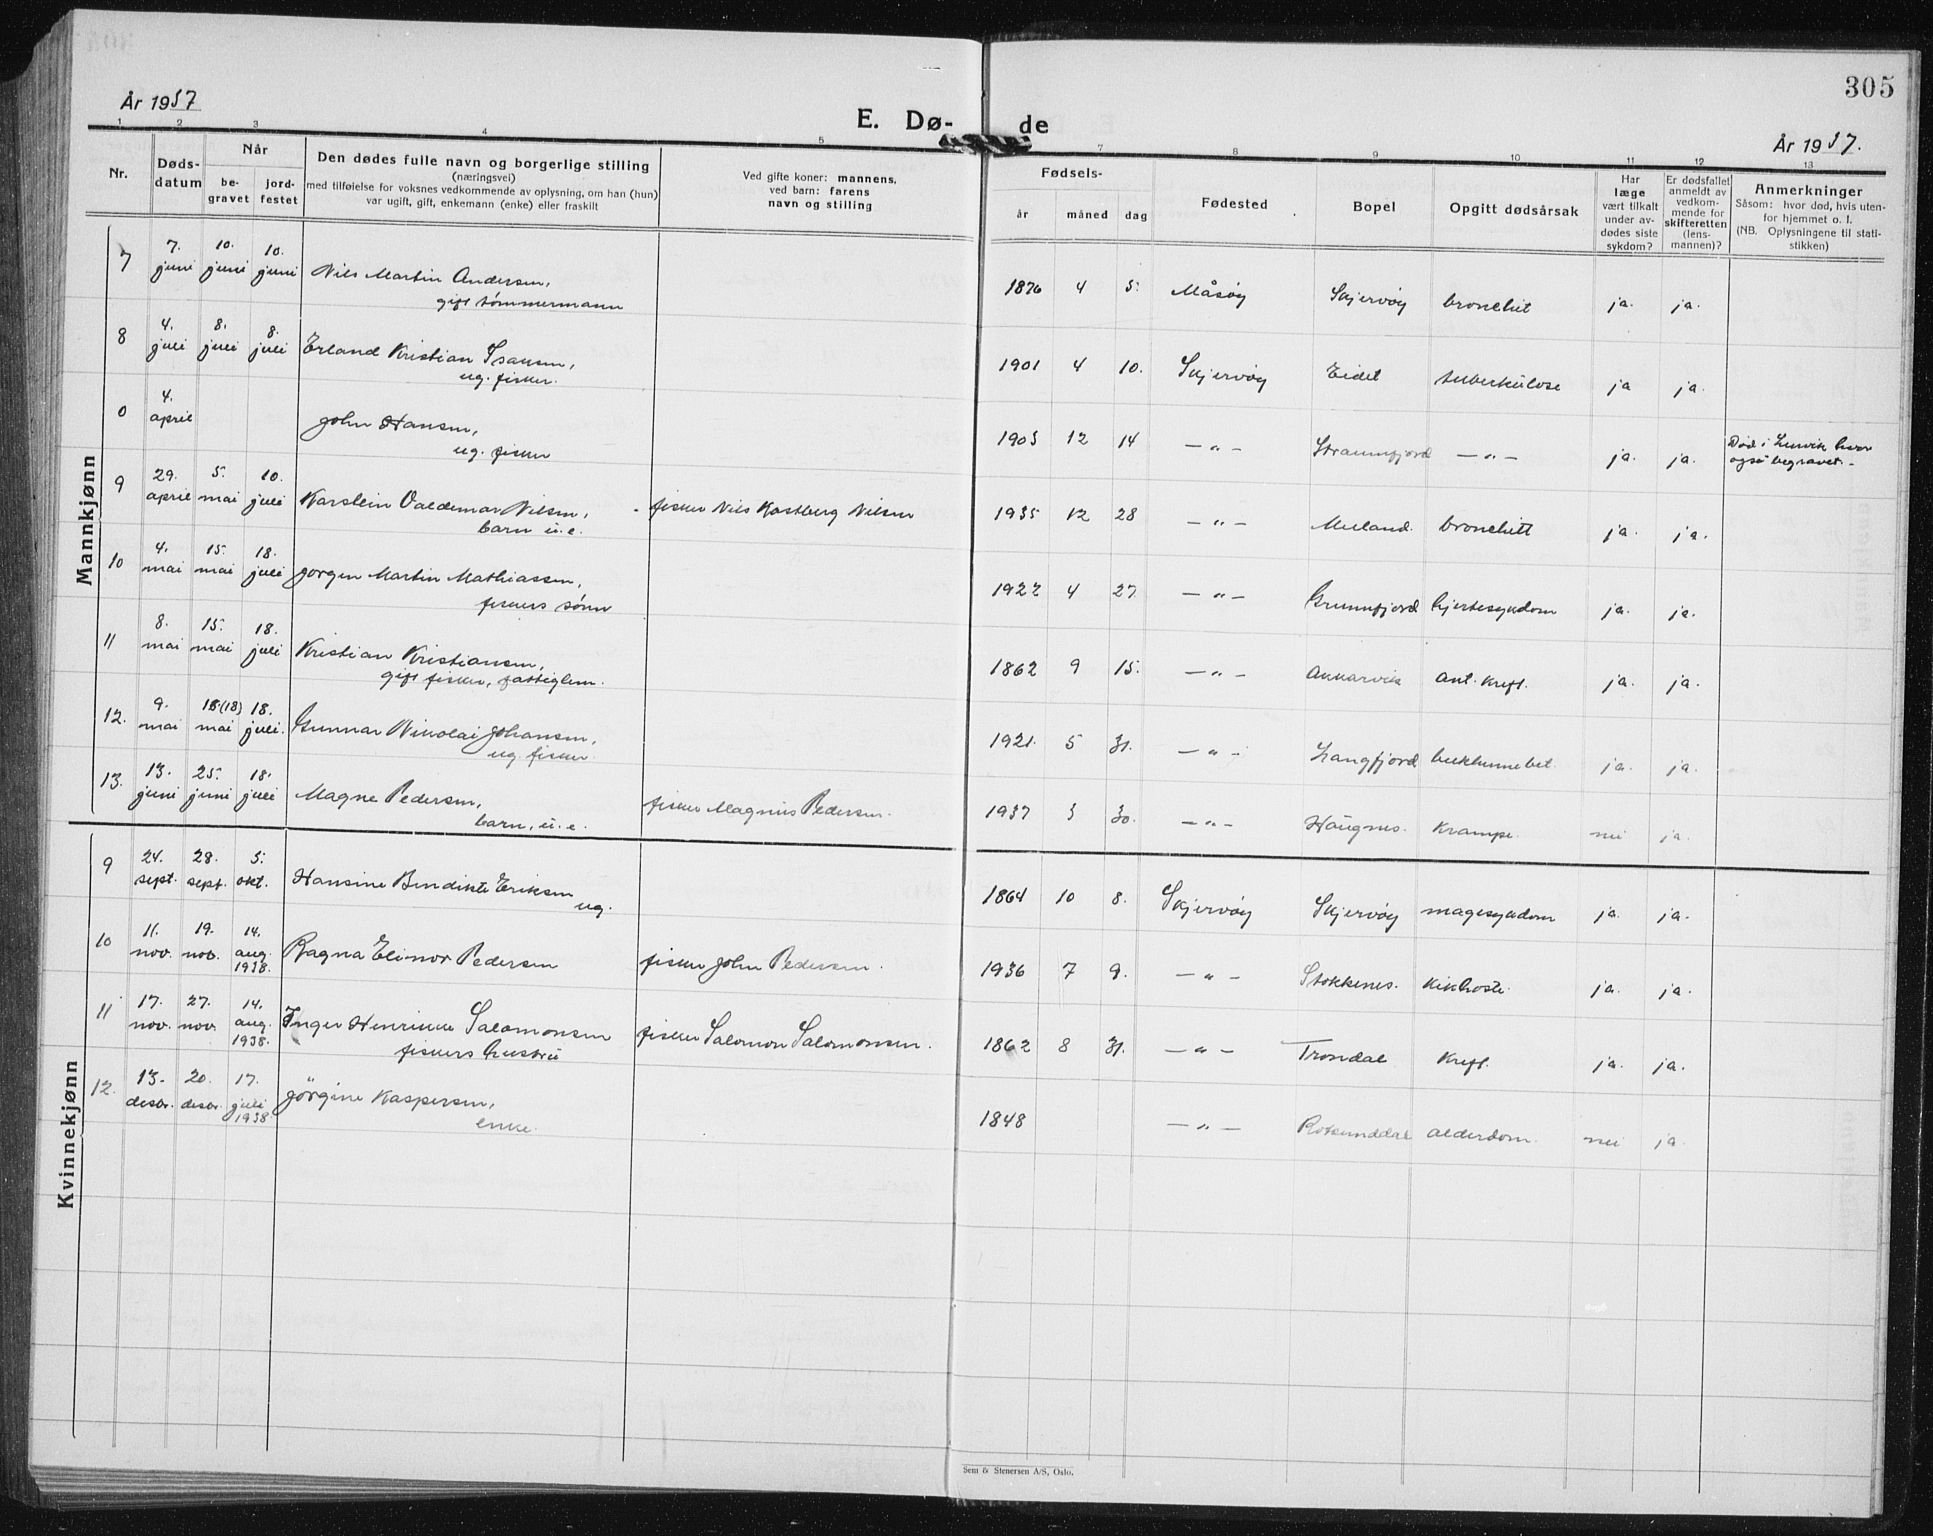 305
År 1937
År 1937.
E. Dø-
de
1 2 3 4 5 7 8 9 10 11 12 13
Nr.
Døds-
datum
Når
be-
gravet
jord-
festet
Den dødes fulle navn og borgerlige stilling
(næringsvei)
med tilføielse for voksnes vedkommende av oplysning, om han (hun)
var ugift, gift, enkemann (enke) eller fraskilt
Ved gifte koner: mannens,
ved barn: farens
navn og stilling
Fødsels-
år måned dag
Fødested
Bopel
Opgitt dødsårsak
Har
læge
vært tilkalt
under av-
dødes siste
sykdom?
Er dødsfallet
anmeldt av
vedkom-
mende for
skifteretten
(lens-
mannen)?
Anmerkninger
Såsom: hvor død, hvis uten-
for hjemmet o. l.
(NB. Oplysningene til stati-
stikken)
Mannkjønn
7 7. juni 10. juni 10. juni Nils Martin Andersen,
gift tømmermann
1876 4 5. Måsøy Skjervøy bronchit ja. ja.
8 4. juli 8. juli 8. juli Erland Kristian Isaksen,
ug. fisker.
1901 4 10. Skjervøy Eidet tuberkulose ja ja.
0 4. april John Hansen,
ug. fisker
1905 12 14 — " — Straumfjord — " — ja. ja. Død i hvor
også begravet. -
9 29. april 5. mai 10. juli Karstein Valdemar Nilsen,
barn u. e.
fisker Nils Kastberg Nilsen
1935 12 28 — " — Meiland. bronchitt ja. ja.
10 4. mai 15. mai 18. juli Jørgen Martin Mathiassen,
fiskers sønn
1922 4 27. — " — Grunnfjord hjertesykdom ja. ja.
11 8. mai 15. mai 18. juli Kristian Kristiansen,
gift fisker, fattiglem.
1862 9 15. — " — Akkarvik ant. kreft. ja. ja.
12. 9. mai 18 (18) mai 18. juli. Gunnar Nikolai Johansen,
ug. fisker.
1921. 5 31. — " — Langfjord bukhinnebet. ja. ja.
13. 13. juni 25. juni 18. juli Magne Pedersen,
barn, u. e.
fisker Magnus Pedersen.
1937 3 30. — " — Haugnes. Krampe. nei ja.
Kvinnekjønn
9 24. sept. 28. sept. 5. okt. Hansine Bendikte Eriksen
ug.
1864 10 8. Skjervøy Skjervøy magesykdom ja. ja.
10 11. nov. 19. nov. 14. aug. 1938. Ragna Elinor Pedersen
fisker John Pedersen.
1936 7 9. — " — Stokkenes. Kikhoste. ja. ja.
11 17. nov. 27. nov. 14. aug. 1938. Inger Henrikke Salomonsen
fiskers hustru
fisker Salomon Salomonsen.
1862 8 31. — " — Trondal Kreft. ja. ja.
12. 13. desbr. 20. desbr. 17. juli 1938 Jørgine Kaspersen,
enke.
1848 — " — Rotsunddal alderdom. nei ja.
Sem & Stenersen A/S, Oslo.